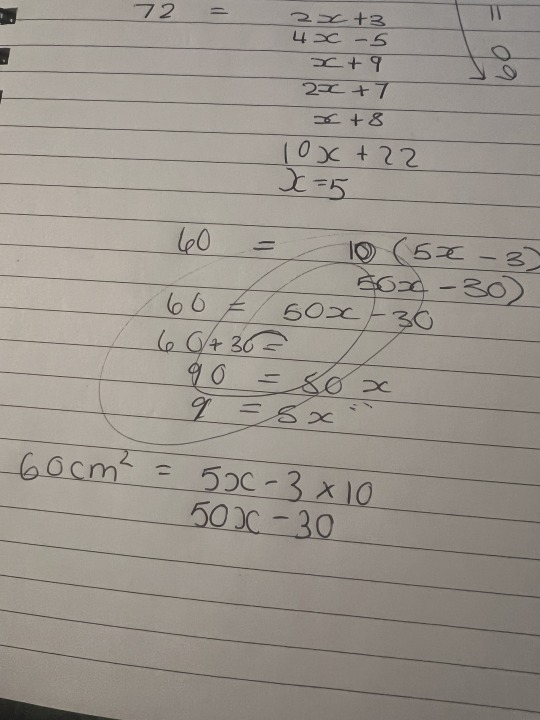 72 = 2x+3
4x - 5
x + 9
2x + 7
x + 8
10x + 22
x = 5
60 = 10 (5x - 3)
50x - 30)
60 = 50x - 30
60 + 30 =
90 = 50 x
9 = 5x
60cm² = 5x - 3 × 10
50x - 30